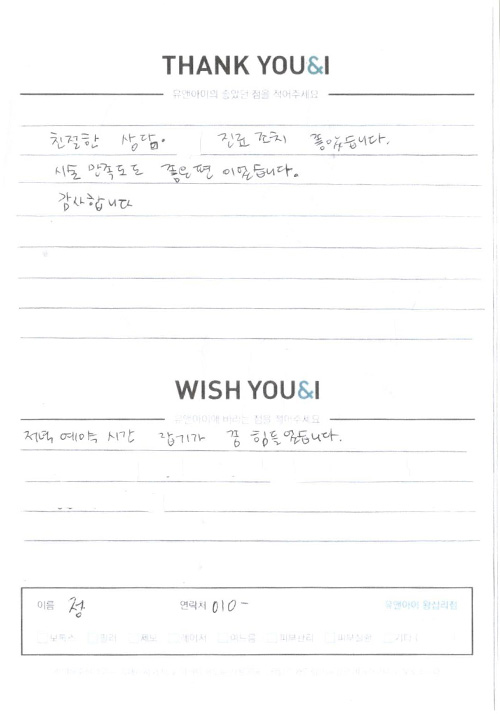 THANK YOU&I
유앤아이의 좋았던 점을 적어주세요
친절한 상담. 진료 조치 좋았습니다.
시술 만족도도 좋은편 이었습니다.
감사합니다
WISH YOU&I
유앤아이에 바라는 점을 적어주세요
저녁 예약 시간 잡기가 꼼 힘들었습니다.
이름 정 연락처 010- 유앤아이 왕십리점
보톡스 필러 제모 레이저 여드름 피부관리 기타 (